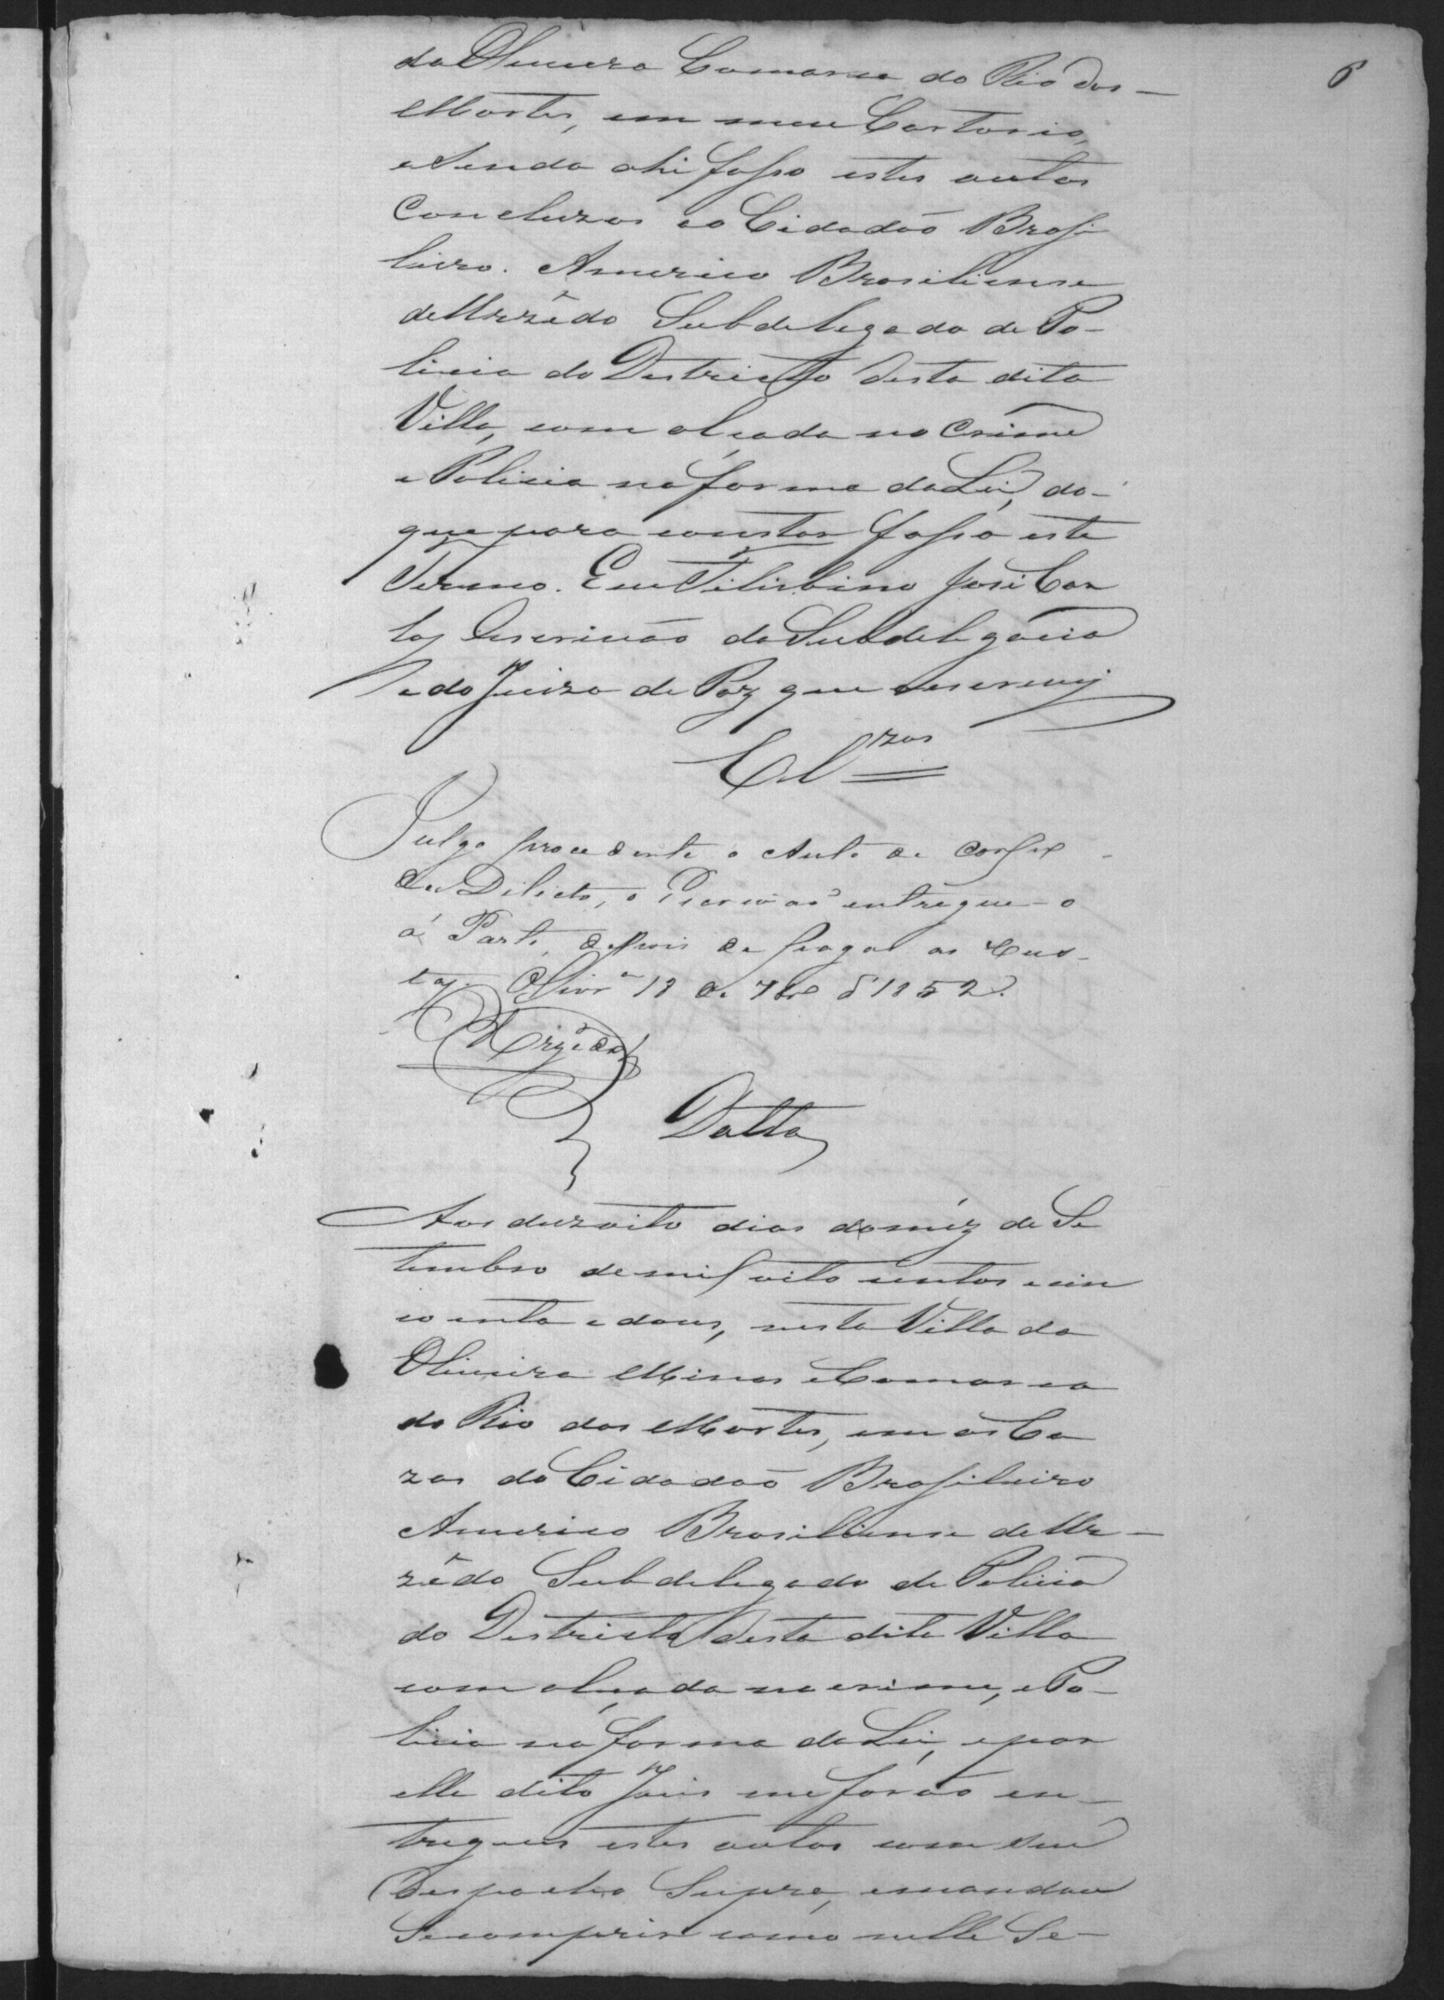 6
da Oliveira Comarca do Rio das
Mortes, em meu Cartorio,
e sendo ahi fasso estes autos
Concluzos ao Cidadão Brasi
leiro. Americo Brasiliense
de Urzêdo Subdelegado de Po-
licia do Destricto desta dita
Villa, com alçada no Crime
e Policia na forma da Lei, do-
que para constar fasso este
Termo. Eu Felisbino José Car
los Escrivão da Subdelegacia
e do Juizo de Paz que escrevy
Cl.zos
Julgo procedente o Auto de Corpo
de Delicto, o Escrivaõ entregue-o
á Parte, depois de pagas as Cus-
tas. Olivr.a 18 de 7bro d'1852.
Urzêdo
Datta
Aos dezoito dias do mêz de Se
tembro de mil oito centos e cin
coenta e dous, nesta Villa da
Oliveira Minas e Comarca
do Rio das Mortes, em as Ca
zas do Cidadaõ Brasileiro
Americo Brasiliense de Ur-
zêdo Subdelegado de Policia
do Destricto desta dita Villa
com alçada no crime, e Po-
licia na forma da Lei, e por
elle dito Juis me forão en-
tregues estes autos com seu
Despacho Supra, e mandou
Se comprir como nelle Se-